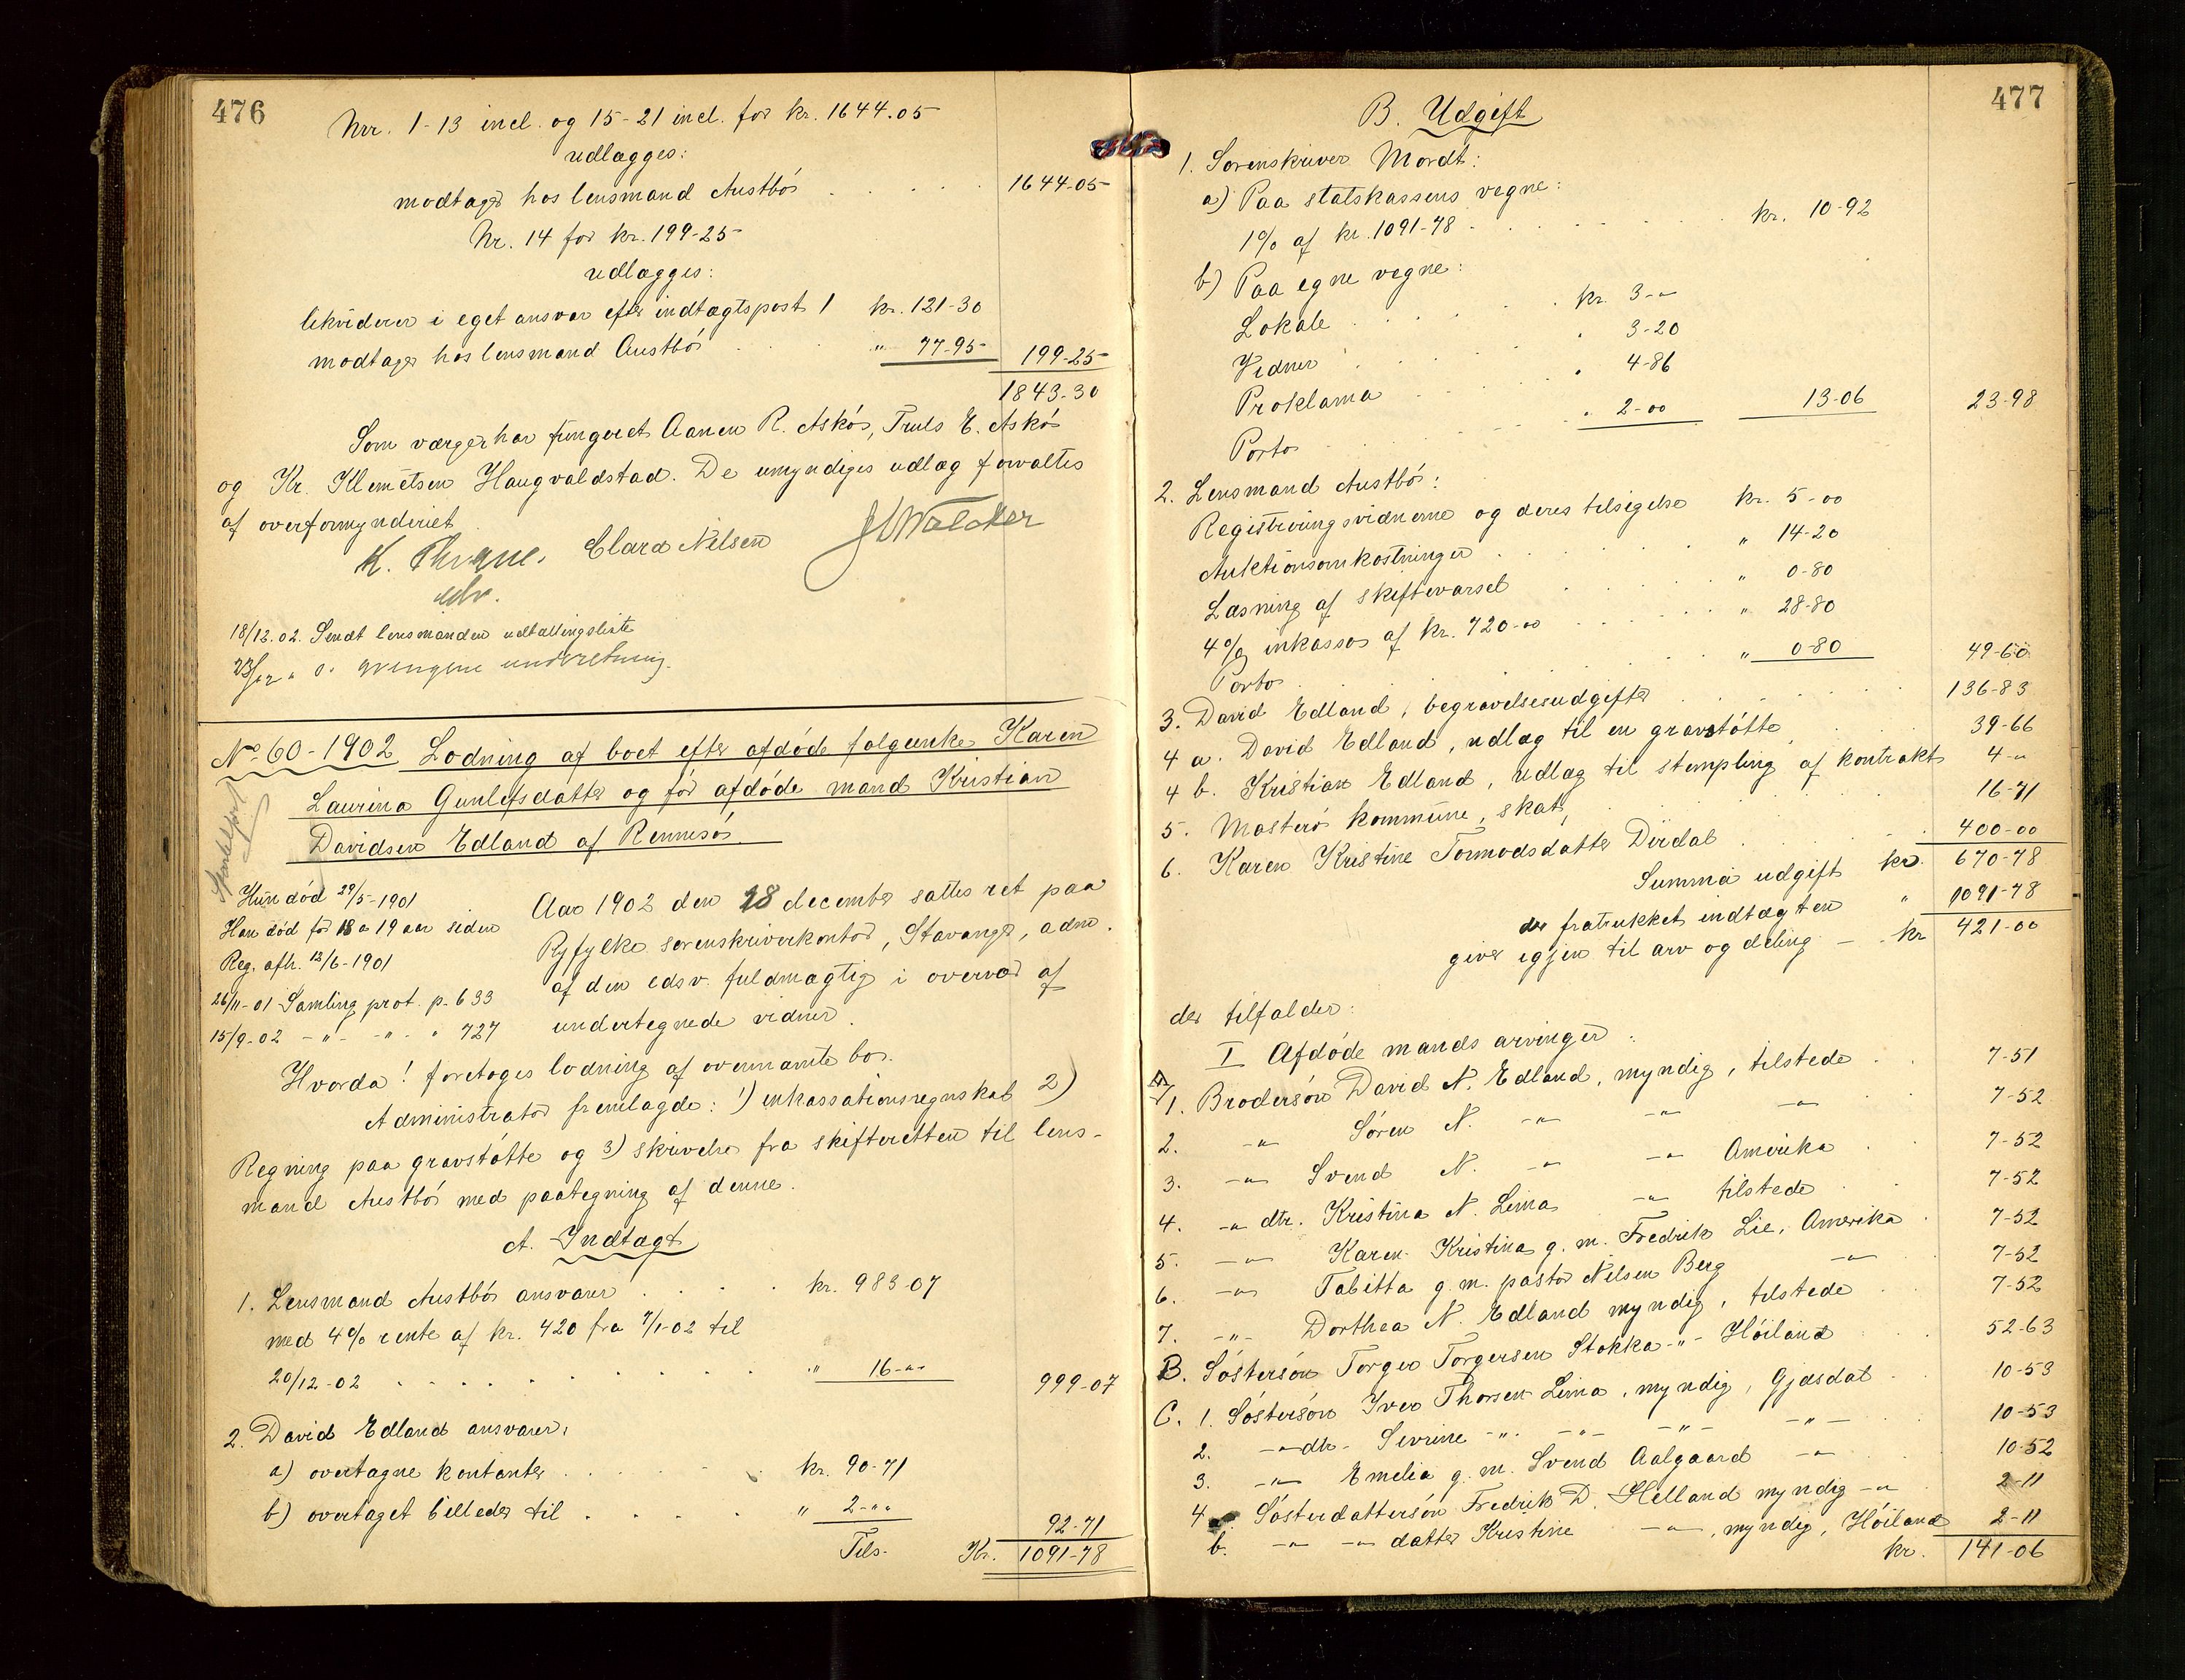 476
Nr. 1-13 incl. og 15-21 incl. for kr. 1644.05
udlægges:
modtager hos lensmand Austbö . . . . 1644-05
Nr. 14 for kr. 199-25
udlægges:
likviderer i eget ansvar efter indtægtspost 1 kr. 121-30
modtager hos lensmand Austbö . . . " 77-95 199-25
1843-30
Som værger har fungeret Aanen R. Askö, Truls E. Askö
og Kr. Klemetsen Haugvaldstad. De umyndiges udlæg forvaltes
af overformynderiet
K. Thrane, Clara Nilsen
edsv.
18/12.02. Sendt lensmanden udtællingsliste
23/12 " arvingene underretning.
No 60-1902 Lodning af boet efter afdöde folgeenke Karen
Laurina Gunlefsdatter og för afdöde mand Kristian
Davidsen Edland af Rennesö.
Hun död 29/5-1901
Han död for 18 a 19 aar siden
Reg. afh. 12/6-1901
26/11-01 Samling prot. p. 633
15/9-02 -"- -"- " 727
Aar 1902 den 18 december sattes ret paa
Ryfylke sorenskriverkontor, Stavanger, adm.
af den edsv. fuldmægtig i overvær af
undertegnede vidner.
Hvorda! foretoges lodning af ovennævnte bo.
Administrator fremlagde: 1) inkassationsregnskab 2)
Regning paa gravstötte og 3) skrivelse fra skifteretten til lens-
mand Austbö med paategning af denne.
A. Indtægt
1. Lensmand Austbö ansvarer . . . kr. 983-07
med 4% rente af kr. 420 fra 7/1-02 til
20/12-02 . . . . . . . . " 16-"" 999-07
2. David Edland ansvarer:
a) overtagne kontanter . . . . . kr. 90-71
b) overtaget billeder til . . . . " 2-"" 92-71
Tils. Kr. 1091-78
477
B. Udgift
1. Sorenskriver Mordt:
a) Paa statskassens vegne:
1% af kr. 1091-78 . . . . . . kr. 10-92
b) Paa egne vegne:
Lokale . . . . . kr. 3-"
Vidner . . . . " 3-20
Proklama . . . . " 4-86
Porto . . . . " 2-00 13-06 23-98
2. Lensmand Austbö:
Registreringsvidnerne og deres tilsigelse kr. 5-00
Auktionsomkostninger . . . . . " 14-20
Læsning af skiftevarsel . . . . " 0-80
4% inkasso af kr. 720-00 . . . . " 28-80
Porto . . . . . . " 0-80 49-60
3. David Edland, begravelsesudgifter . . . . . 136-83
4 a. David Edland, udlæg til en gravstötte . . 39-66
4 b. Kristian Edland, udlæg til stempling af kontrakt 4-"
5. Mosterö kommune, skat, . . . . . 16-71
6. Karen Kristine Tormodsdatter Dirdal . . . . 400-00
Summa udgift kr. 670-78
der fratrukket indtægten " 1091-78
giver igjen til arv og deling - kr 421-00
der tilfalder:
I Afdöde mands arvinger:
1. Brodersön David N. Edland, myndig, tilstede . . 7-51
2. -"- Sören N. -"- -"- -"- 7-52
3. -"- Svend N. -"- -"- Amerika . 7-52
4. -"- dtr. Kristina N. Lima -"- tilstede . . 7-52
5. -"- Karen Kristina g. m. Fredrik Lie, Amerika . 7-52
6. -"- Tabitta g. m. pastor Nilsen Berg -"- 7-52
7. -"- Dorthea N. Edland myndig, tilstede . . 7-52
B. Söstersön Torger Torgersen Stokka -"- Höiland . . 52-63
C. 1. Söstersön Iver Thorsen Lima, myndig, Gjæsdal . . 10-53
2. -"- dtr. Sivrine -"- -"- -"- -"- . . 10-53
3. -"- Emelia g. m. Svend Aalgaard -"- . . 10-52
4 Sösterdattersön Fredrik D. Helland myndig -"- 2-11
b. -"- -"- datter Kristine -"-, myndig, Höiland 2-11
kr. 141-06